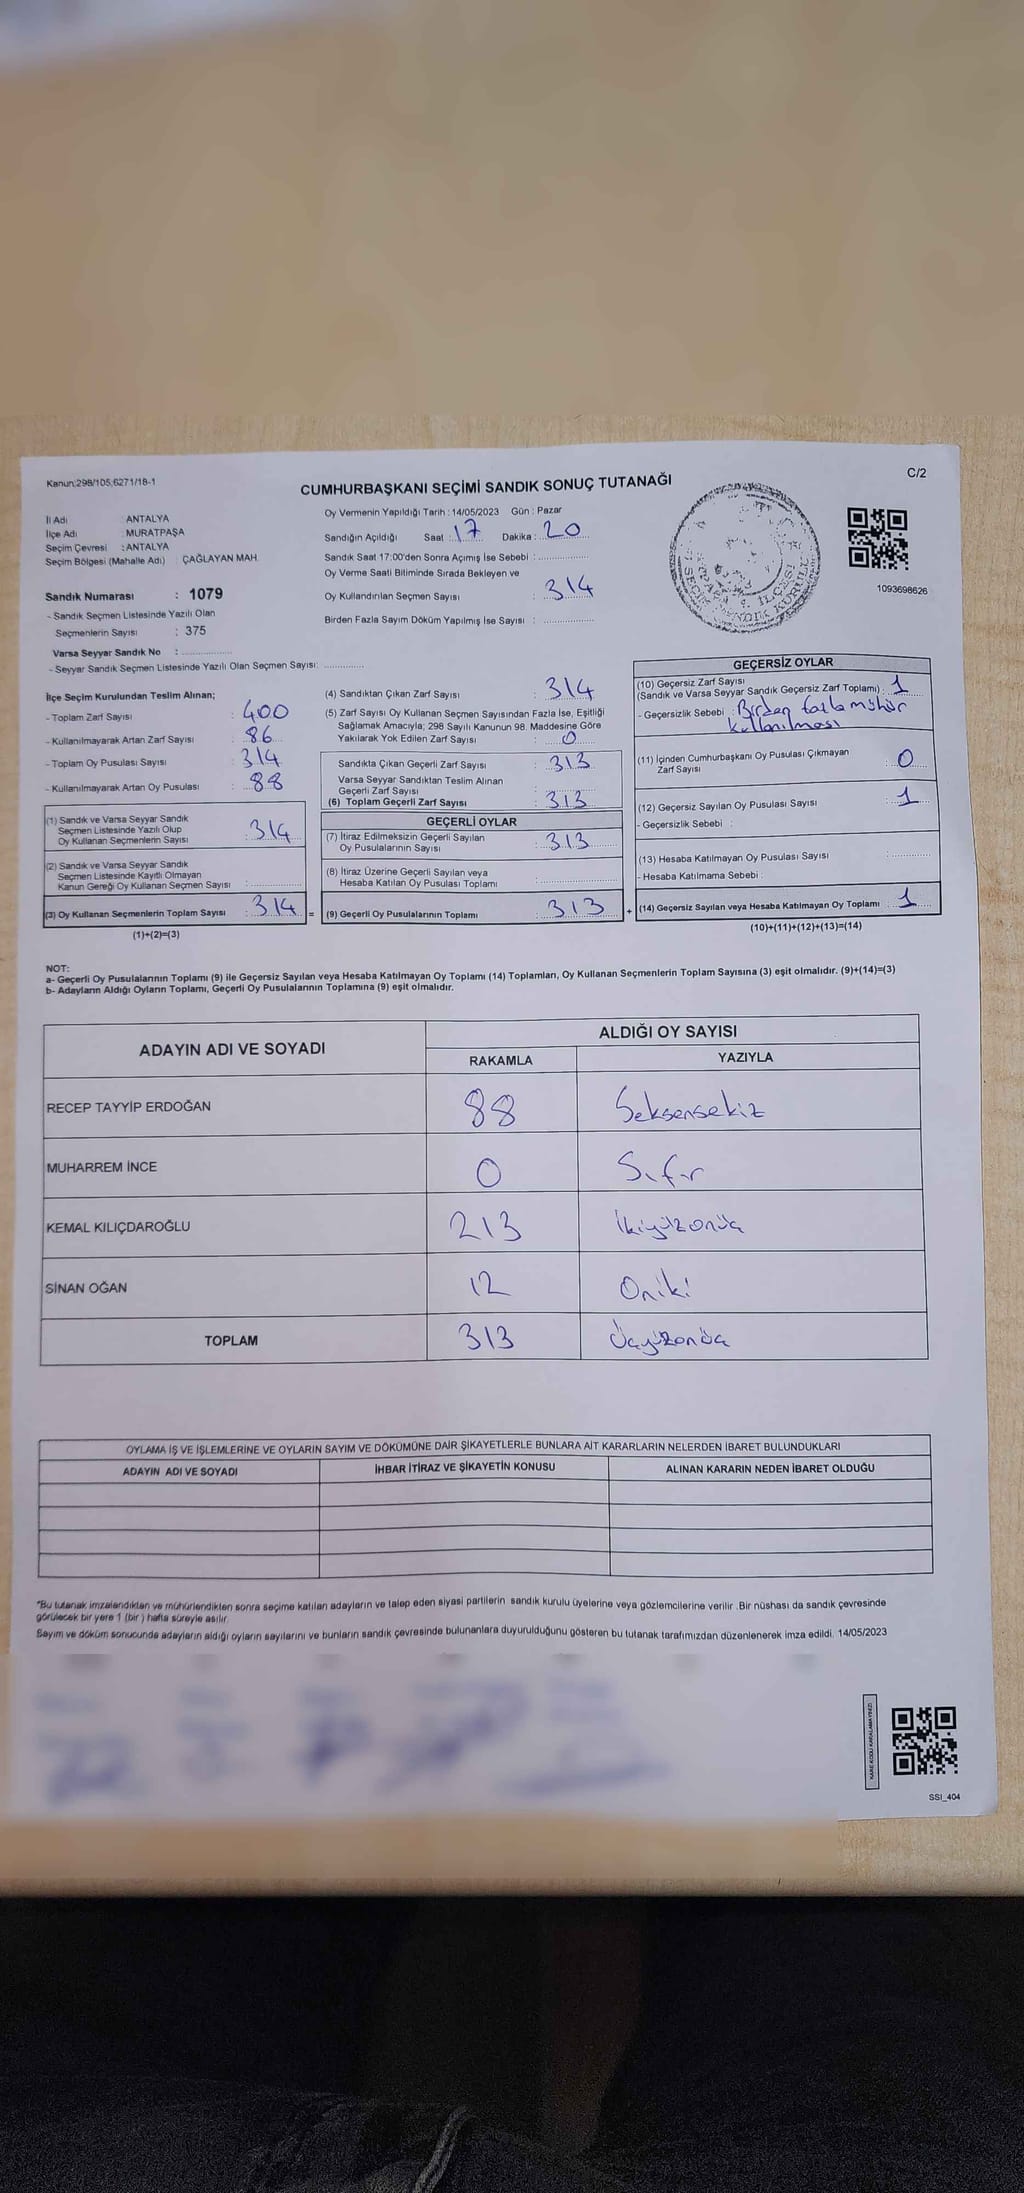 Kanun:298/105,6271/18-1
C/2
CUMHURBAŞKANI SEÇİMİ SANDIK SONUÇ TUTANAĞI
İl Adı : ANTALYA
İlçe Adı : MURATPAŞA
Seçim Çevresi : ANTALYA
Seçim Bölgesi (Mahalle Adı) : ÇAĞLAYAN MAH.
Sandık Numarası : 1079
- Sandık Seçmen Listesinde Yazılı Olan
Seçmenlerin Sayısı : 375
Varsa Seyyar Sandık No :
- Seyyar Sandık Seçmen Listesinde Yazılı Olan Seçmen Sayısı:
Oy Vermenin Yapıldığı Tarih : 14/05/2023 Gün : Pazar
Sandığın Açıldığı Saat : 17 Dakika : 20
Sandık Saat 17:00'den Sonra Açmış İse Sebebi :
Oy Verme Saati Bitiminde Sırada Bekleyen ve
Oy Kullandırılan Seçmen Sayısı : 314
Birden Fazla Sayım Döküm Yapılmış İse Sayısı :
1093698626
İLÇESİ
İlçe Seçim Kurulundan Teslim Alınan;
- Toplam Zarf Sayısı : 400
- Kullanılmayarak Artan Zarf Sayısı : 86
- Toplam Oy Pusulası Sayısı : 314
- Kullanılmayarak Artan Oy Pusulası : 88
(1) Sandık ve Varsa Seyyar Sandık
Seçmen Listesinde Yazılı Olup
Oy Kullanan Seçmenlerin Sayısı : 314
(2) Sandık ve Varsa Seyyar Sandık
Seçmen Listesinde Kayıtlı Olmayan
Kanun Gereği Oy Kullanan Seçmen Sayısı :
(3) Oy Kullanan Seçmenlerin Toplam Sayısı : 314 =
(1)+(2)=(3)
(4) Sandıktan Çıkan Zarf Sayısı : 314
(5) Zarf Sayısı Oy Kullanan Seçmen Sayısından Fazla İse, Eşitliği
Sağlamak Amacıyla; 298 Sayılı Kanunun 98. Maddesine Göre
Yakılarak Yok Edilen Zarf Sayısı : 0
Sandıkta Çıkan Geçerli Zarf Sayısı : 313
Varsa Seyyar Sandıktan Teslim Alınan
Geçerli Zarf Sayısı :
(6) Toplam Geçerli Zarf Sayısı : 313
GEÇERLİ OYLAR
(7) İtiraz Edilmeksizin Geçerli Sayılan
Oy Pusulalarının Sayısı : 313
(8) İtiraz Üzerine Geçerli Sayılan veya
Hesaba Katılan Oy Pusulası Toplamı :
(9) Geçerli Oy Pusulalarının Toplamı : 313 +
GEÇERSİZ OYLAR
(10) Geçersiz Zarf Sayısı
(Sandık ve Varsa Seyyar Sandık Geçersiz Zarf Toplamı) : 1
- Geçersizlik Sebebi : Birden fazla mühür
kullanılması
(11) İçinden Cumhurbaşkanı Oy Pusulası Çıkmayan
Zarf Sayısı : 0
(12) Geçersiz Sayılan Oy Pusulası Sayısı : 1
- Geçersizlik Sebebi :
(13) Hesaba Katılmayan Oy Pusulası Sayısı :
- Hesaba Katılmama Sebebi :
(14) Geçersiz Sayılan veya Hesaba Katılmayan Oy Toplamı : 1
(10)+(11)+(12)+(13)=(14)
NOT:
a- Geçerli Oy Pusulalarının Toplamı (9) ile Geçersiz Sayılan veya Hesaba Katılmayan Oy Toplamı (14) Toplamları, Oy Kullanan Seçmenlerin Toplam Sayısına (3) eşit olmalıdır. (9)+(14)=(3)
b- Adayların Aldığı Oyların Toplamı, Geçerli Oy Pusulalarının Toplamına (9) eşit olmalıdır.
ADAYIN ADI VE SOYADI
ALDIĞI OY SAYISI
RAKAMLA YAZIYLA
RECEP TAYYİP ERDOĞAN 88 Seksensekiz
MUHARREM İNCE 0 Sıfır
KEMAL KILIÇDAROĞLU 213 İkiyüzonüç
SİNAN OĞAN 12 Oniki
TOPLAM 313 Üçyüzonüç
OYLAMA İŞ VE İŞLEMLERİNE VE OYLARIN SAYIM VE DÖKÜMÜNE DAİR ŞİKAYETLERLE BUNLARA AİT KARARLARIN NELERDEN İBARET BULUNDUKLARI
ADAYIN ADI VE SOYADI İHBAR İTİRAZ VE ŞİKAYETİN KONUSU ALINAN KARARIN NEDEN İBARET OLDUĞU
"Bu tutanak imzalandıktan ve mühürlendikten sonra seçime katılan adayların ve talep eden siyasi partilerin sandık kurulu üyelerine veya gözlemcilerine verilir .Bir nüshası da sandık çevresinde
görülecek bir yere 1 (bir ) hafta süreyle asılır.
Sayım ve döküm sonucunda adayların aldığı oyların sayılarını ve bunların sandık çevresinde bulunanlara duyurulduğunu gösteren bu tutanak tarafımızdan düzenlenerek imza edildi. 14/05/2023
SSI_404